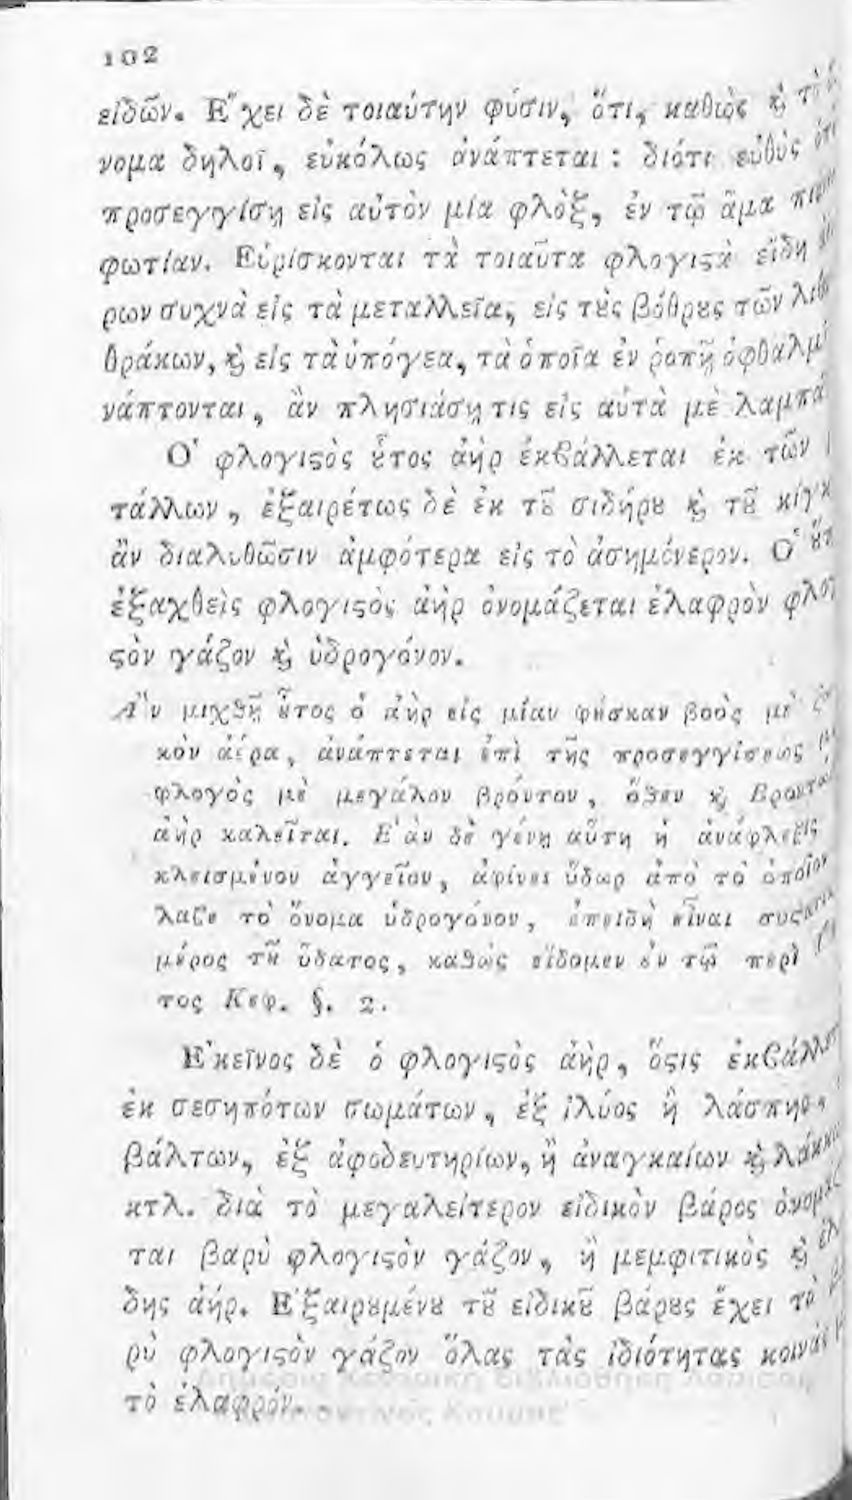 102
εἰδῶν. Ἔχει δὲ τοιαύτην φύσιν, ὅτι, καθὼς ϗ τὸ
νομα δηλοῖ, εὐκόλως ἀνάπτεται: διότι εὐθὺς ὅτι
προσεγγίσῃ εἰς αὐτὸν μία φλὸξ, ἐν τῷ ἅμα
φωτίαν. Εὑρίσκονται τὰ τοιαῦτα φλογιϛὰ εἴδη
ρων συχνὰ εἰς τὰ μεταλλεῖα, εἰς τȣ̀ς βόθρȣς τῶν λιθ
θράκων, ϗ εἰς τὰ ὑπόγεα, τὰ ὁποῖα ἐν ῥοπῇ ὀφθαλμ
νάπτονται, ἂν πλησιάσῃ τις εἰς αὐτὰ μὲ λαμπά
Ὁ φλογιϛὸς ȣ̃τος ἀὴρ ἐκβάλλεται ἐκ τῶν
τάλλων, ἐξαιρέτως δὲ ἐκ τȣ͂ σιδήρȣ ϗ τȣ͂ κίγκ
ἂν διαλυθῶσιν ἀμφότερα εἰς τὸ ἀσημόνερον. Ὁ ȣ̃τ
ἐξαχθεὶς φλογιϛὸς ἀὴρ ὀνομάζεται ἐλαφρὸν φλογ
ϛὸν γάζον ϗ ὑδρογόνον.
Ἂν μιχθῇ ȣ̃τος ὁ ἀὴρ εἰς μίαν φȣ́σκαν βοὸς μὲ ζ
κὸν ἀέρα, ἀνάπτεται ἐπὶ τῆς προσεγγίσεως
φλογὸς μὲ μεγάλον βρόντον, ὅθεν ϗ Βροντα
ἀὴρ καλεῖται. Ἐὰν δὲ γένῃ αὕτη ἡ ἀνάφλεξις
κλεισμένον ἀγγεῖον, ἀφίνει ὕδωρ ἀπὸ τὸ ὁποῖον
λαβε τὸ ὄνομα ὑδρογόνον, ἐπειδὴ εἶναι συϛατικ
μέρος τȣ͂ ὕδατος, καθὼς εἴδομεν ἐν τῷ περὶ
τος Κεφ. §. 2.
Ἐκεῖνος δὲ ὁ φλογιϛὸς ἀὴρ, ὅϛις ἐκβάλλετ
ἐκ σεσηπότων σωμάτων, ἐξ ἰλύος ἢ λάσπης,
βάλτων, ἐξ ἀφοδευτηρίων, ἢ ἀναγκαίων ϗ λάκκω
κτλ. διὰ τὸ μεγαλείτερον εἰδικὸν βάρος ὀνομάζ
ται βαρὺ φλογιϛὸν γάζον, ἢ μεμφιτικὸς ϗ ἑλ
δης ἀήρ. Ἐξαιρȣμένȣ τȣ͂ εἰδικȣ͂ βάρȣς ἔχει τὸ
ρὺ φλογιϛὸν γάζον ὅλας τὰς ἰδιότητας κοινὰς
τὸ ἐλαφρόν.